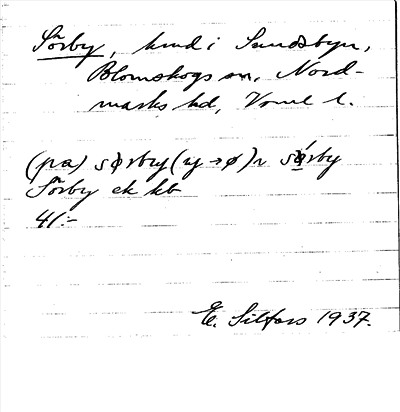 Sörby, hmd i Sundsbyn,
Blomskogs sn, Nord-
marks hd, Vrml l.
(på) sørby (y→ø)
Sörby ek kb
41:-
E. Silfors 1937.